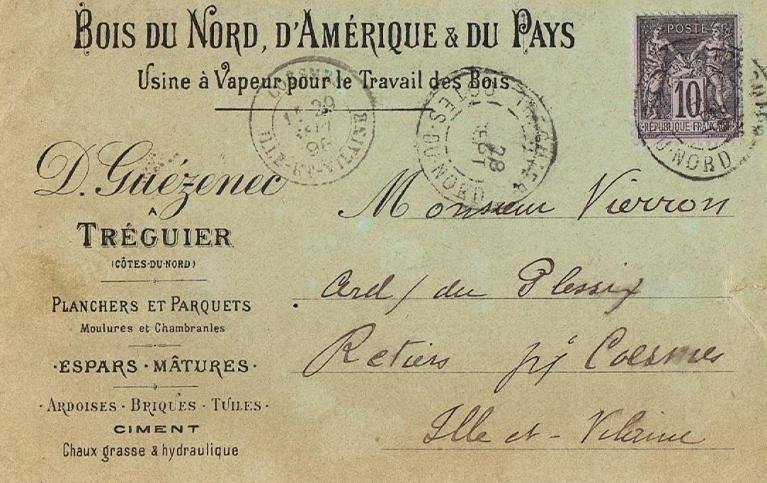 BOIS DU NORD, D'AMÉRIQUE & DU PAYS
Usine à Vapeur pour le Travail des Bois
POSTE
10
RÉPUBLIQUE FRANÇAISE
ILLE-ET-VILAINE
29
96
28
CÔTES-DU-NORD
DU-NORD
D. Guézenec
À
TRÉGUIER
(CÔTES-DU-NORD)
PLANCHERS ET PARQUETS
Moulures et Chambranles
ESPARS · MÂTURES
ARDOISES · BRIQUES · TUILES
CIMENT
Chaux grasse & hydraulique
Monsieur Vierron
du Plessix
Retiers Coësmes
Ille et - Vilaine